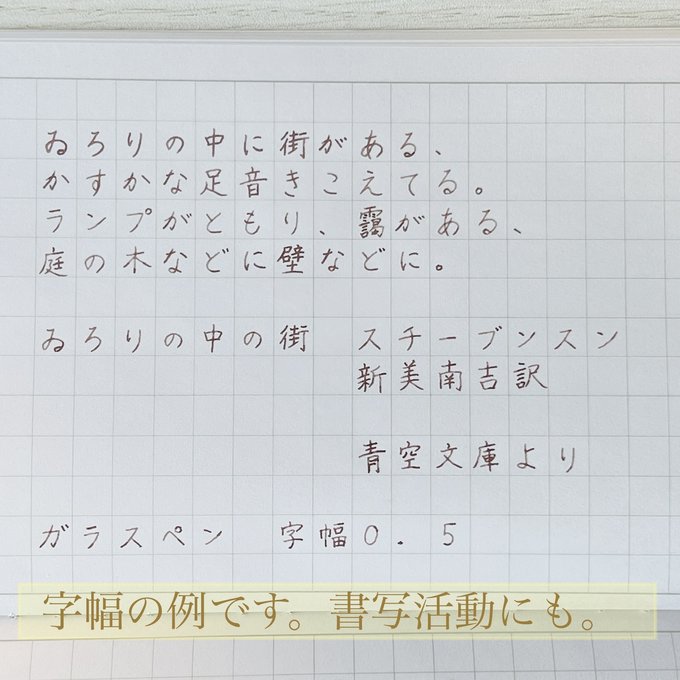 ゐろりの中に街がある、
かすかな足音きこえてる。
ランプがともり、靄がある、
庭の木などに壁などに。
ゐろりの中の街　スチーブンスン
新美南吉訳
青空文庫より
ガラスペン　字幅0．5
字幅の例です。書写活動にも。